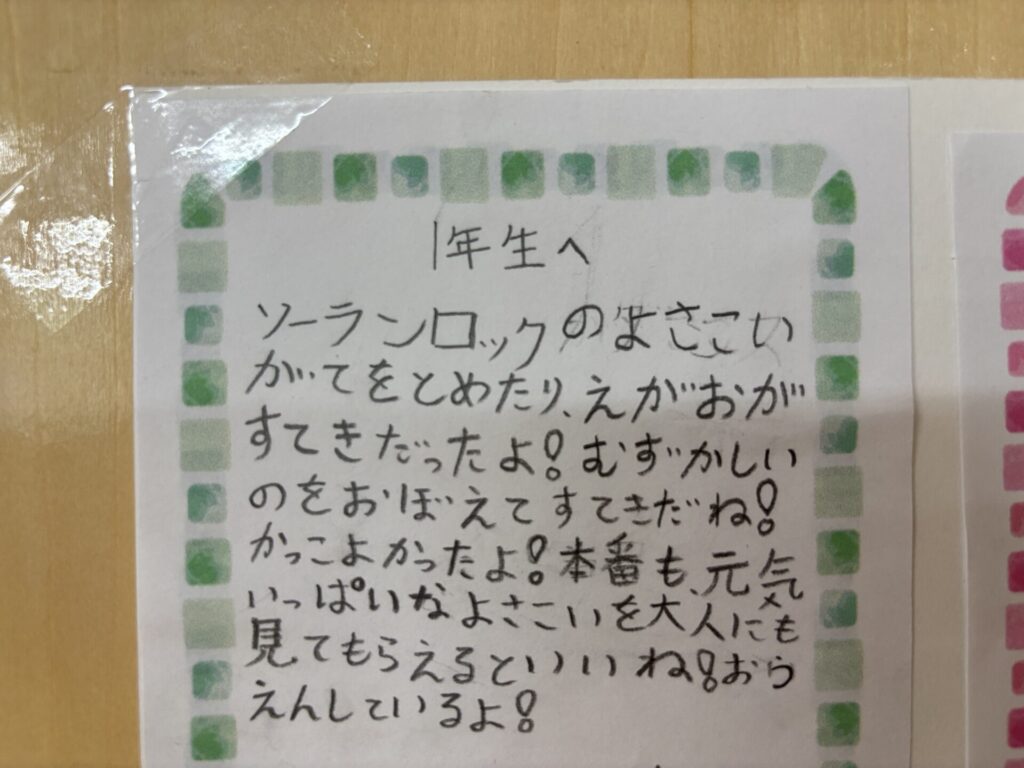 1年生へ
ソーランロックのよさこい
がてをとめたり、えがおが
すてきだったよ!むずかしい
のをおぼえてすてきだね!
かっこよかったよ!本番も、元気
いっぱいなよさこいを大人にも
見てもらえるといいね!おう
えんしているよ!